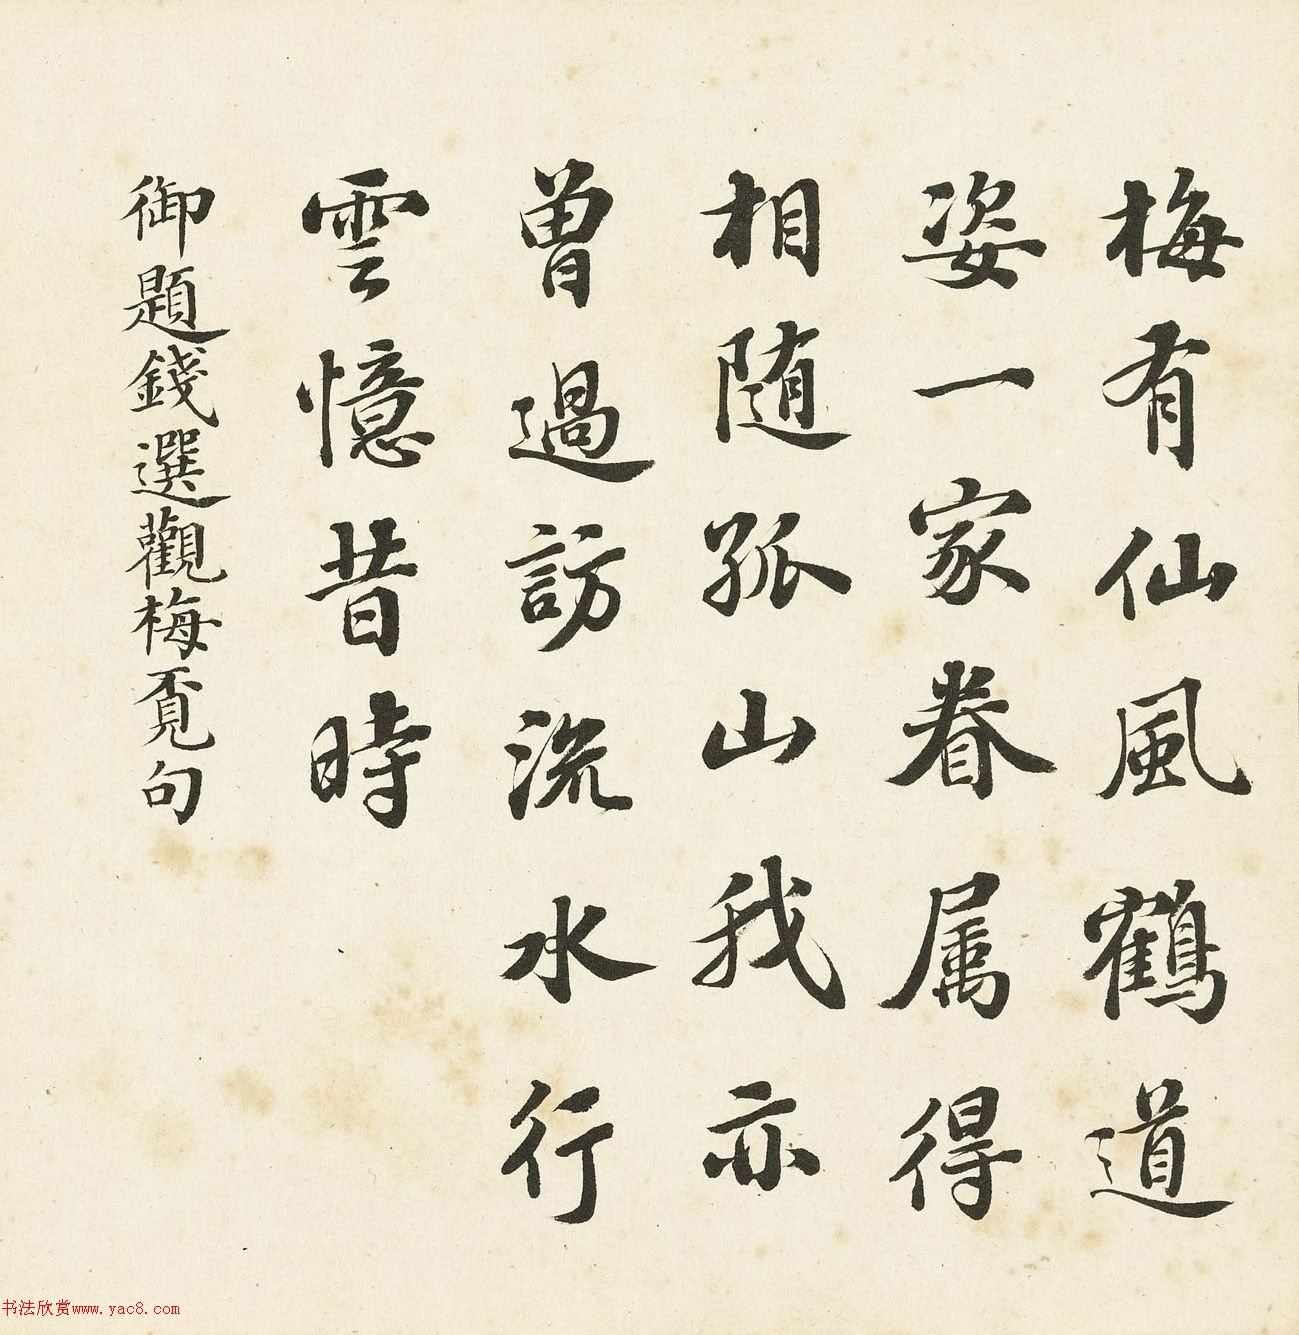 梅有仙風鶴道
姿一家眷属得
相随孤山我亦
曽過訪流水行
雲憶昔時
御題錢選觀梅覔句
书法欣赏www.yac8.com